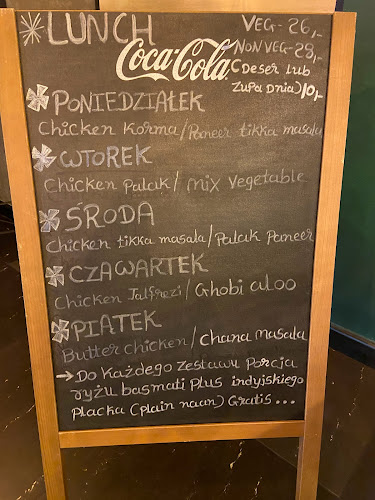 LUNCH
VEG - 26,-
NON VEG - 28,-
Coca-Cola
(Deser lub
Zupa Dnia) 10,-
PONIEDZIAŁEK
Chicken Korma/Paneer tikka masala
WTOREK
Chicken Palak/ mix vegetable
ŚRODA
Chicken tikka masala/Palak Paneer
CZAWARTEK
Chicken Jalfrezi/Ghobi aloo
PIATEK
Butter chicken/chana masala
→ Do Każdego Zestawu Porcja
ryżu basmati Plus indyjskiego
Placka (plain naan) Gratis...